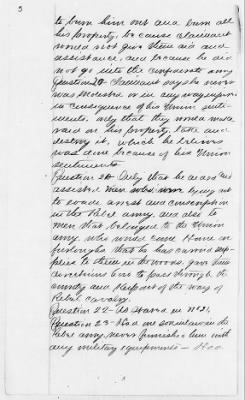 5
to burn him out and burn all
his property, because claimant
would not give them aid and
assistance, and because he did
not go into the confederate army
Question 20 Claimant says he never
was molested or in any way injured
in consequence of his Union senti-
ments, only that they would make
raid on his property, take and
destroy it, which he
was done because of his Union
sentiments
Question 21 Only that he aided and
assisted men who were trying not
to evade arrest and conscription
in the Rebel army, and also to
men that belonged to the Union
army, who would come home on
furloughs that he has carried sup-
plies to them in the woods, gave them
directions how to pass through the
country and keep out of the way of
Rebel cavalry.
Question 22 - As stated in No 21,
Question 23 - Had no son in the
Rebel army, never furnished him with
any military equipments - Had